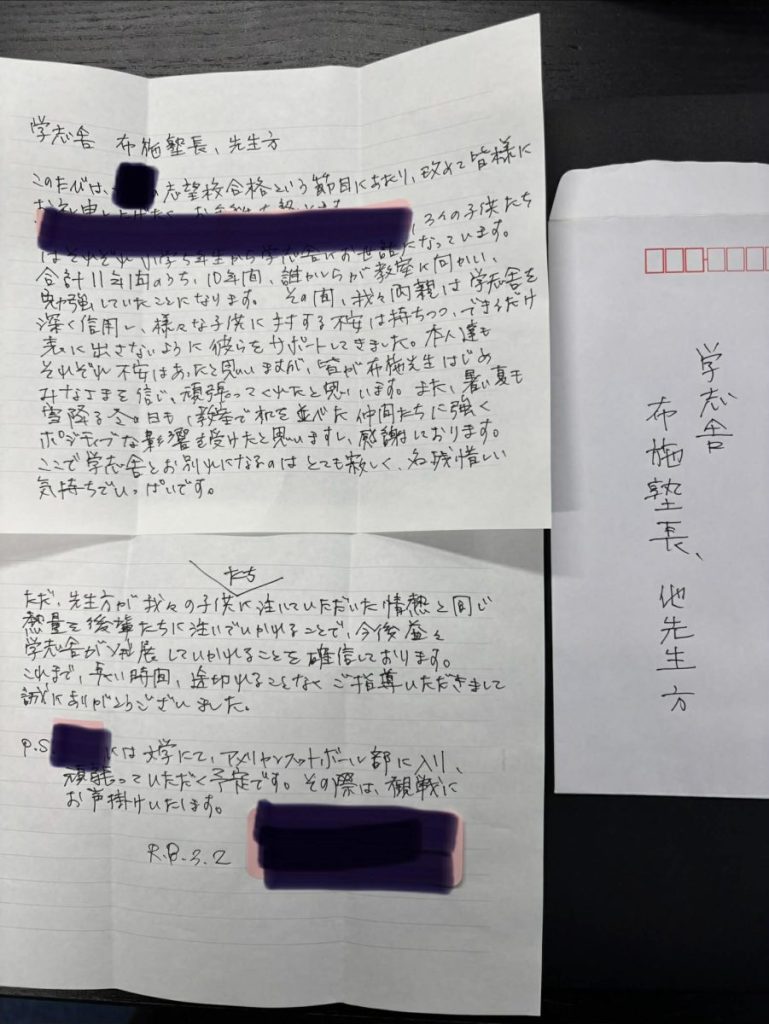 学志舎 布施塾長、先生方
このたびは、 志望校合格という節目にあたり、改めて皆様に
3人の子供たち
はそれぞれ小学5年生から学志舎にお世話になっています。
合計11年間のうち、10年間、誰かしらが教室に向かい、
勉強していたことになります。 その間、我々両親は学志舎を
深く信用し、様々な子供に対する不安は持ちつつ、できるだけ
表に出さないように彼らをサポートしてきました。本人達も
それぞれ不安はあったと思いますが、皆が布施先生はじめ
みなさまを信じ、頑張ってくれたと思います。また、暑い夏も
雪降る冬の日も、教室で机を並べた仲間たちに強く
ポジティブな影響を受けたと思いますし、感謝しております。
ここで学志舎とお別れになるのはとても寂しく、名残惜しい
気持ちでいっぱいです。
たち
ただ、先生方が我々の子供に注いでいただいた情熱と同じ
熱量を後輩たちに注いでいかれることで、今後益々
学志舎が発展していかれることを確信しております。
これまで、長い時間、途切れることなくご指導いただきまして
誠にありがとうございました。
P.S. には大学にて、アメリカンフットボール部に入り、
頑張っていただく予定です。その際は、観戦に
お声掛けいたします。
R.8.3.2
学志舎
布施塾長、他先生方